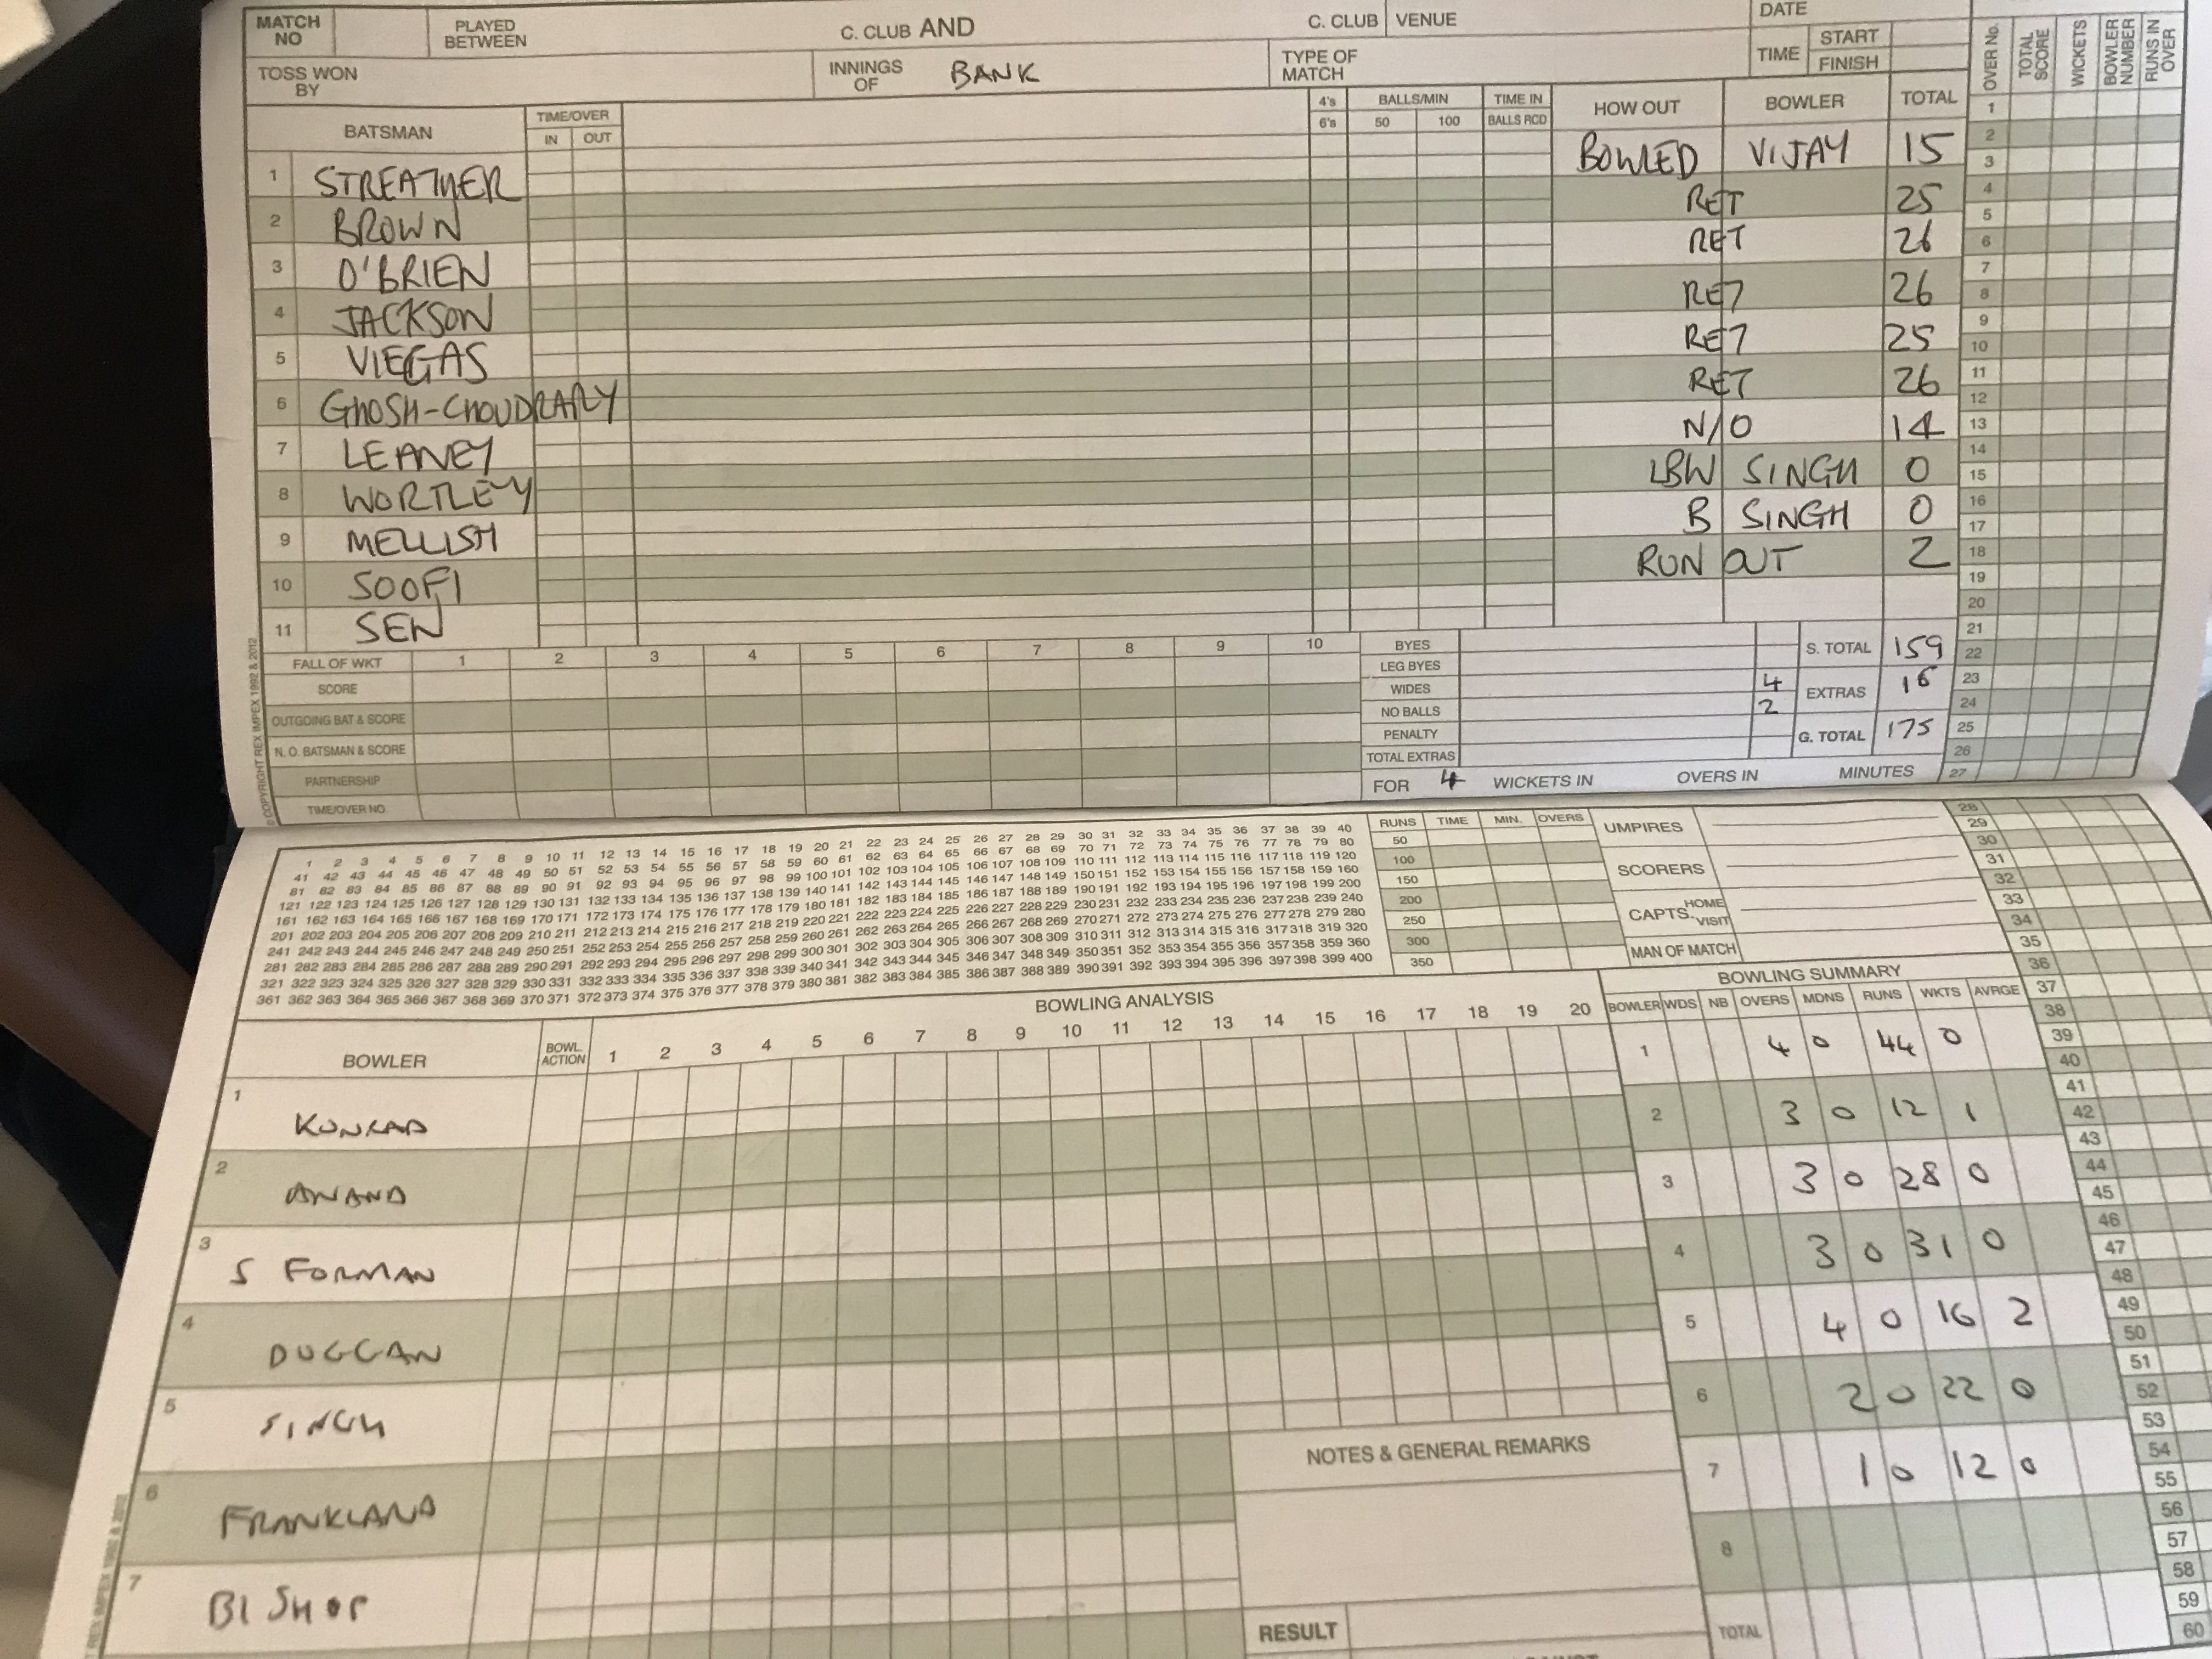 MATCH NO PLAYED BETWEEN C. CLUB AND C. CLUB VENUE DATE
TOSS WON BY INNINGS OF BANK TYPE OF MATCH TIME START FINISH
BATSMAN TIME/OVER IN OUT 4's 6's BALLS/MIN 50 100 TIME IN BALLS RCD HOW OUT BOWLER TOTAL
1 STREATHER BOWLED VIJAY 15
2 BROWN RET 25
3 O'BRIEN RET 26
4 JACKSON RET 26
5 VIEGAS RET 25
6 GHOSH-CHOUDRARY RET 26
7 LEANEY N/O 14
8 WORTLEY LBW SINGH 0
9 MELLISH B SINGH 0
10 SOOFI RUN OUT 2
11 SEN
FALL OF WKT 1 2 3 4 5 6 7 8 9 10
SCORE
OUTGOING BAT & SCORE
N. O. BATSMAN & SCORE
PARTNERSHIP
TIME/OVER NO.
BYES S. TOTAL 159
LEG BYES
WIDES 4 EXTRAS 16
NO BALLS 2
PENALTY G. TOTAL 175
TOTAL EXTRAS
FOR 4 WICKETS IN OVERS IN MINUTES
© COPYRIGHT REX IMPEX 1992 & 2012
OVER No. TOTAL SCORE WICKETS BOWLER NUMBER RUNS IN OVER
1
2
3
4
5
6
7
8
9
10
11
12
13
14
15
16
17
18
19
20
21
22
23
24
25
26
27
1 2 3 4 5 6 7 8 9 10 11 12 13 14 15 16 17 18 19 20 21 22 23 24 25 26 27 28 29 30 31 32 33 34 35 36 37 38 39 40
41 42 43 44 45 46 47 48 49 50 51 52 53 54 55 56 57 58 59 60 61 62 63 64 65 66 67 68 69 70 71 72 73 74 75 76 77 78 79 80
81 82 83 84 85 86 87 88 89 90 91 92 93 94 95 96 97 98 99 100 101 102 103 104 105 106 107 108 109 110 111 112 113 114 115 116 117 118 119 120
121 122 123 124 125 126 127 128 129 130 131 132 133 134 135 136 137 138 139 140 141 142 143 144 145 146 147 148 149 150 151 152 153 154 155 156 157 158 159 160
161 162 163 164 165 166 167 168 169 170 171 172 173 174 175 176 177 178 179 180 181 182 183 184 185 186 187 188 189 190 191 192 193 194 195 196 197 198 199 200
201 202 203 204 205 206 207 208 209 210 211 212 213 214 215 216 217 218 219 220 221 222 223 224 225 226 227 228 229 230 231 232 233 234 235 236 237 238 239 240
241 242 243 244 245 246 247 248 249 250 251 252 253 254 255 256 257 258 259 260 261 262 263 264 265 266 267 268 269 270 271 272 273 274 275 276 277 278 279 280
281 282 283 284 285 286 287 288 289 290 291 292 293 294 295 296 297 298 299 300 301 302 303 304 305 306 307 308 309 310 311 312 313 314 315 316 317 318 319 320
321 322 323 324 325 326 327 328 329 330 331 332 333 334 335 336 337 338 339 340 341 342 343 344 345 346 347 348 349 350 351 352 353 354 355 356 357 358 359 360
361 362 363 364 365 366 367 368 369 370 371 372 373 374 375 376 377 378 379 380 381 382 383 384 385 386 387 388 389 390 391 392 393 394 395 396 397 398 399 400
RUNS TIME MIN. OVERS
50
100
150
200
250
300
350
UMPIRES
SCORERS
CAPTS. HOME VISIT
MAN OF MATCH
BOWLING ANALYSIS
BOWLER BOWL. ACTION 1 2 3 4 5 6 7 8 9 10 11 12 13 14 15 16 17 18 19 20
1 KONRAD
2 ANAND
3 S FORMAN
4 DUGGAN
5 SINGH
6 FRANKLAND
7 BISHOP
BOWLING SUMMARY
BOWLER WDS NB OVERS MDNS RUNS WKTS AVRGE
1 4 0 44 0
2 3 0 12 1
3 3 0 28 0
4 3 0 31 0
5 4 0 16 2
6 2 0 22 0
7 1 0 12 0
8
TOTAL
NOTES & GENERAL REMARKS
RESULT
28
29
30
31
32
33
34
35
36
37
38
39
40
41
42
43
44
45
46
47
48
49
50
51
52
53
54
55
56
57
58
59
60
REX IMPEX 1992 & 2012